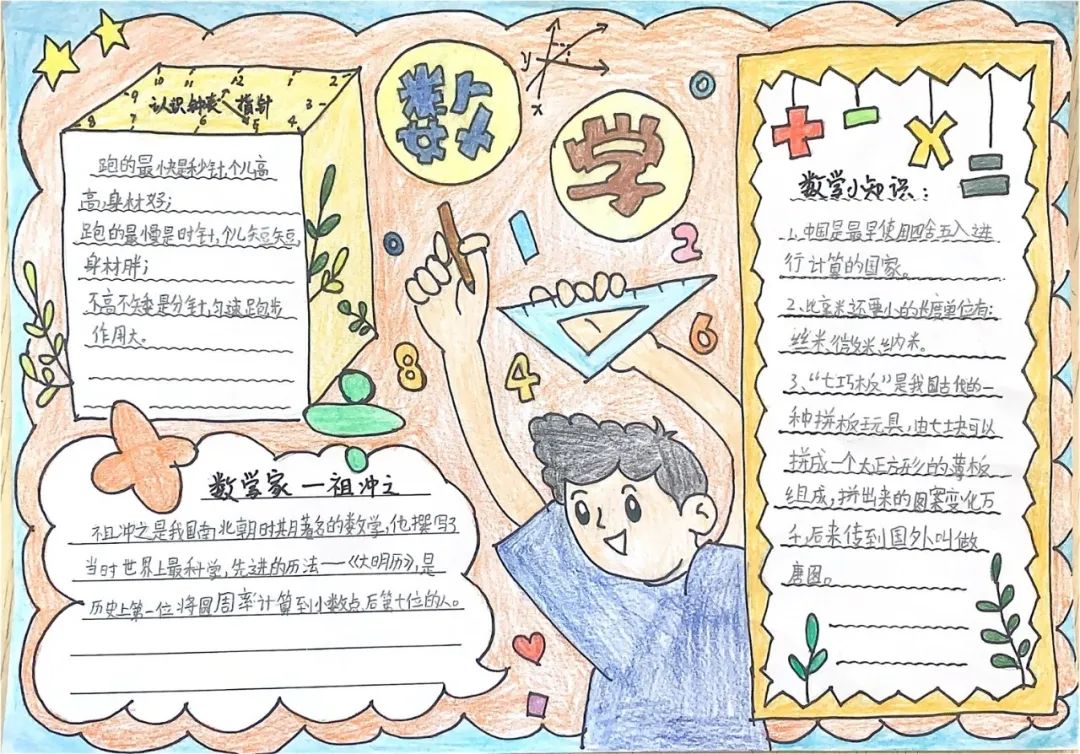 数学
y
x
10 11 12 1 2
9 认识钟表 指针 3
8 7 6 5 4
跑的最快是秒针,个儿高
高,身材好;
跑的最慢是时针,个儿短短,
身材胖;
不高不矮是分针,匀速跑步
作用大。
0
1
2
0
6
8
4
数学家一祖冲之
祖冲之是我国南北朝时期著名的数学,他撰写了
当时世界上最科学,先进的历法——《大明历》,是
历史上第一位将圆周率计算到小数点后第七位的人。
+ - × =
数学小知识:
1.中国是最早使用四舍五入进
行计算的国家。
2.比毫米还要小的长度单位有:
丝米、微米、纳米。
3.“七巧板”是我国古代的一
种拼板玩具,由七块可以
拼成一个大正方形的薄板
组成,拼出来的图案变化万
千,后来传到国外叫做
唐图。